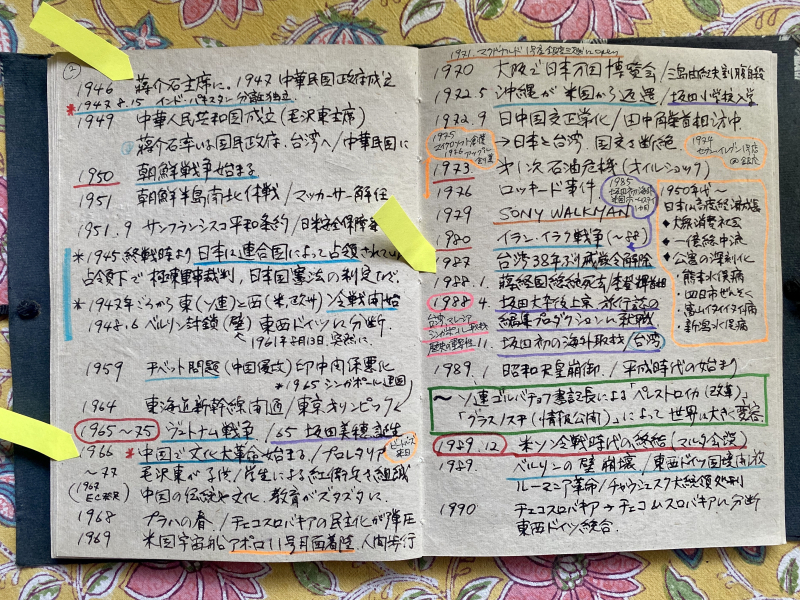 ②
1946 蔣介石主席に。1947 中華民国政府成立
*1947.8.15 インド・パキスタン 分離独立。
1949 中華人民共和国成立(毛沢東主席)
蔣介石率いる国民政府、台湾へ/中華民国に
1950 朝鮮戦争始まる
1951 朝鮮半島南北休戦/マッカーサー解任
1951.9 サンフランシスコ平和条約/日米安全保障
*1945終戦時より日本は連合国によって占領されてい
占領下で極東軍事裁判、日本国憲法の制定など。
*1947年ごろから東(ソ連)と西(米、欧州)冷戦開始
1948.6 ベルリン封鎖(壁) 東西ドイツに分断
1961年8月13日、突然に
1959 チベット問題(中国侵攻)印中関係悪化
*1965 シンガポール建国
1964 東海道新幹線開通/東京オリンピック
1965〜75 ベトナム戦争/65 坂田美穂誕生
1966 *中国で文化大革命始まる/プロレタリア
ビートルズ来日
〜77 毛沢東が子供/学生による紅衛兵を組織
(1967 EC発足) 中国の伝統や文化、教育がズタズタに
1968 プラハの春/チェコスロバキアの民主化が弾圧
1969 米国宇宙船アポロ11号月面着陸 人間歩行
1971. マクドナルド1号店銀座三越にopen
1970 大阪で日本万国博覧会/三島由紀夫割腹自殺
1972.5 沖縄が米国から返還/坂田小学校入学
1972.9 日中国交正常化/田中角栄首相訪中
→日本と台湾、国交を断絶
1975 マイクロソフト創業
1976 アップル創業
1974 セブンイレブン1号店
1973 オ1次石油危機(オイルショック)
1976 ロッキード事件
1985 坂田初の海外
1979 SONY WALKMAN
1980 イラン・イラク戦争(〜88)
1987 台湾38年ぶり戒厳令解除
1988.1. 蔣経国総統死去/李登輝就任
1988 4. 坂田大卒後上京、旅行誌の
編集プロダクションに就職
台湾、マレーシア
シンガポール取材
歴史の重要性
11. 坂田初の海外取材/台湾
1950年代〜
日本は高度経済成長
◆大衆消費社会
◆一億総中流
◆公害の深刻化
・熊本水俣病
・四日市ぜんそく
・富山イタイイタイ病
・新潟水俣病
1989.1 昭和天皇崩御/平成時代の始まり
〜ソ連ゴルバチョフ書記長による「ペレストロイカ(改革)」
「グラスノスチ(情報公開)」によって世界は大きく変容
1989.12 米ソ冷戦時代の終結(マルタ会談)
1989. ベルリンの壁崩壊/東西ドイツ国境開放
ルーマニア革命/チャウシェスク大統領処刑
1990 チェコスロバキア→チェコとスロバキアに分断
東西ドイツ統合.